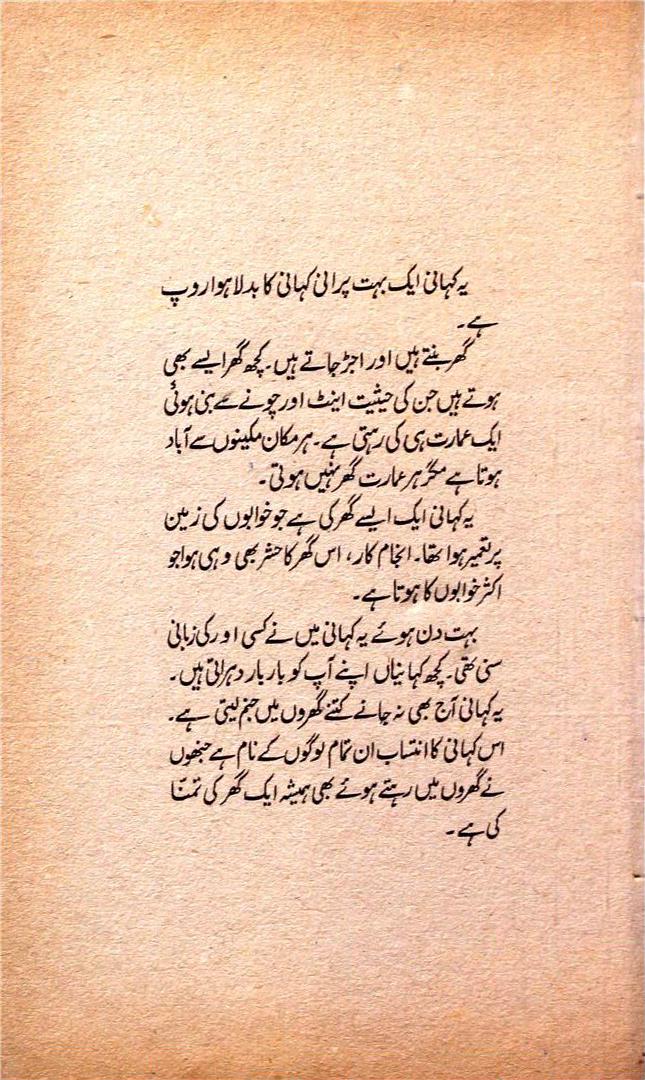 یہ کہانی ایک بہت پرانی کہانی کا بدلا ہوا روپ
ہے۔
گھر بنتے ہیں اور اجڑ جاتے ہیں۔ کچھ گھر ایسے بھی
ہوتے ہیں جن کی حیثیت اینٹ اور چونے سے بنی ہوئی
ایک عمارت ہی کی رہتی ہے۔ ہر مکان مکینوں سے آباد
ہوتا ہے مگر ہر عمارت گھر نہیں ہوتی۔
یہ کہانی ایک ایسے گھر کی ہے جو خوابوں کی زمین
پر تعمیر ہوا تھا۔ انجام کار، اس گھر کا حشر بھی وہی ہوا جو
اکثر خوابوں کا ہوتا ہے۔
بہت دن ہوئے یہ کہانی میں نے کسی اور کی زبانی
سنی تھی۔ کچھ کہانیاں اپنے آپ کو بار بار دہراتی ہیں۔
یہ کہانی آج بھی نہ جانے کتنے گھروں میں جنم لیتی ہے۔
اس کہانی کا انتساب ان تمام لوگوں کے نام ہے جنھوں
نے گھروں میں رہتے ہوئے بھی ہمیشہ ایک گھر کی تمنّا
کی ہے۔